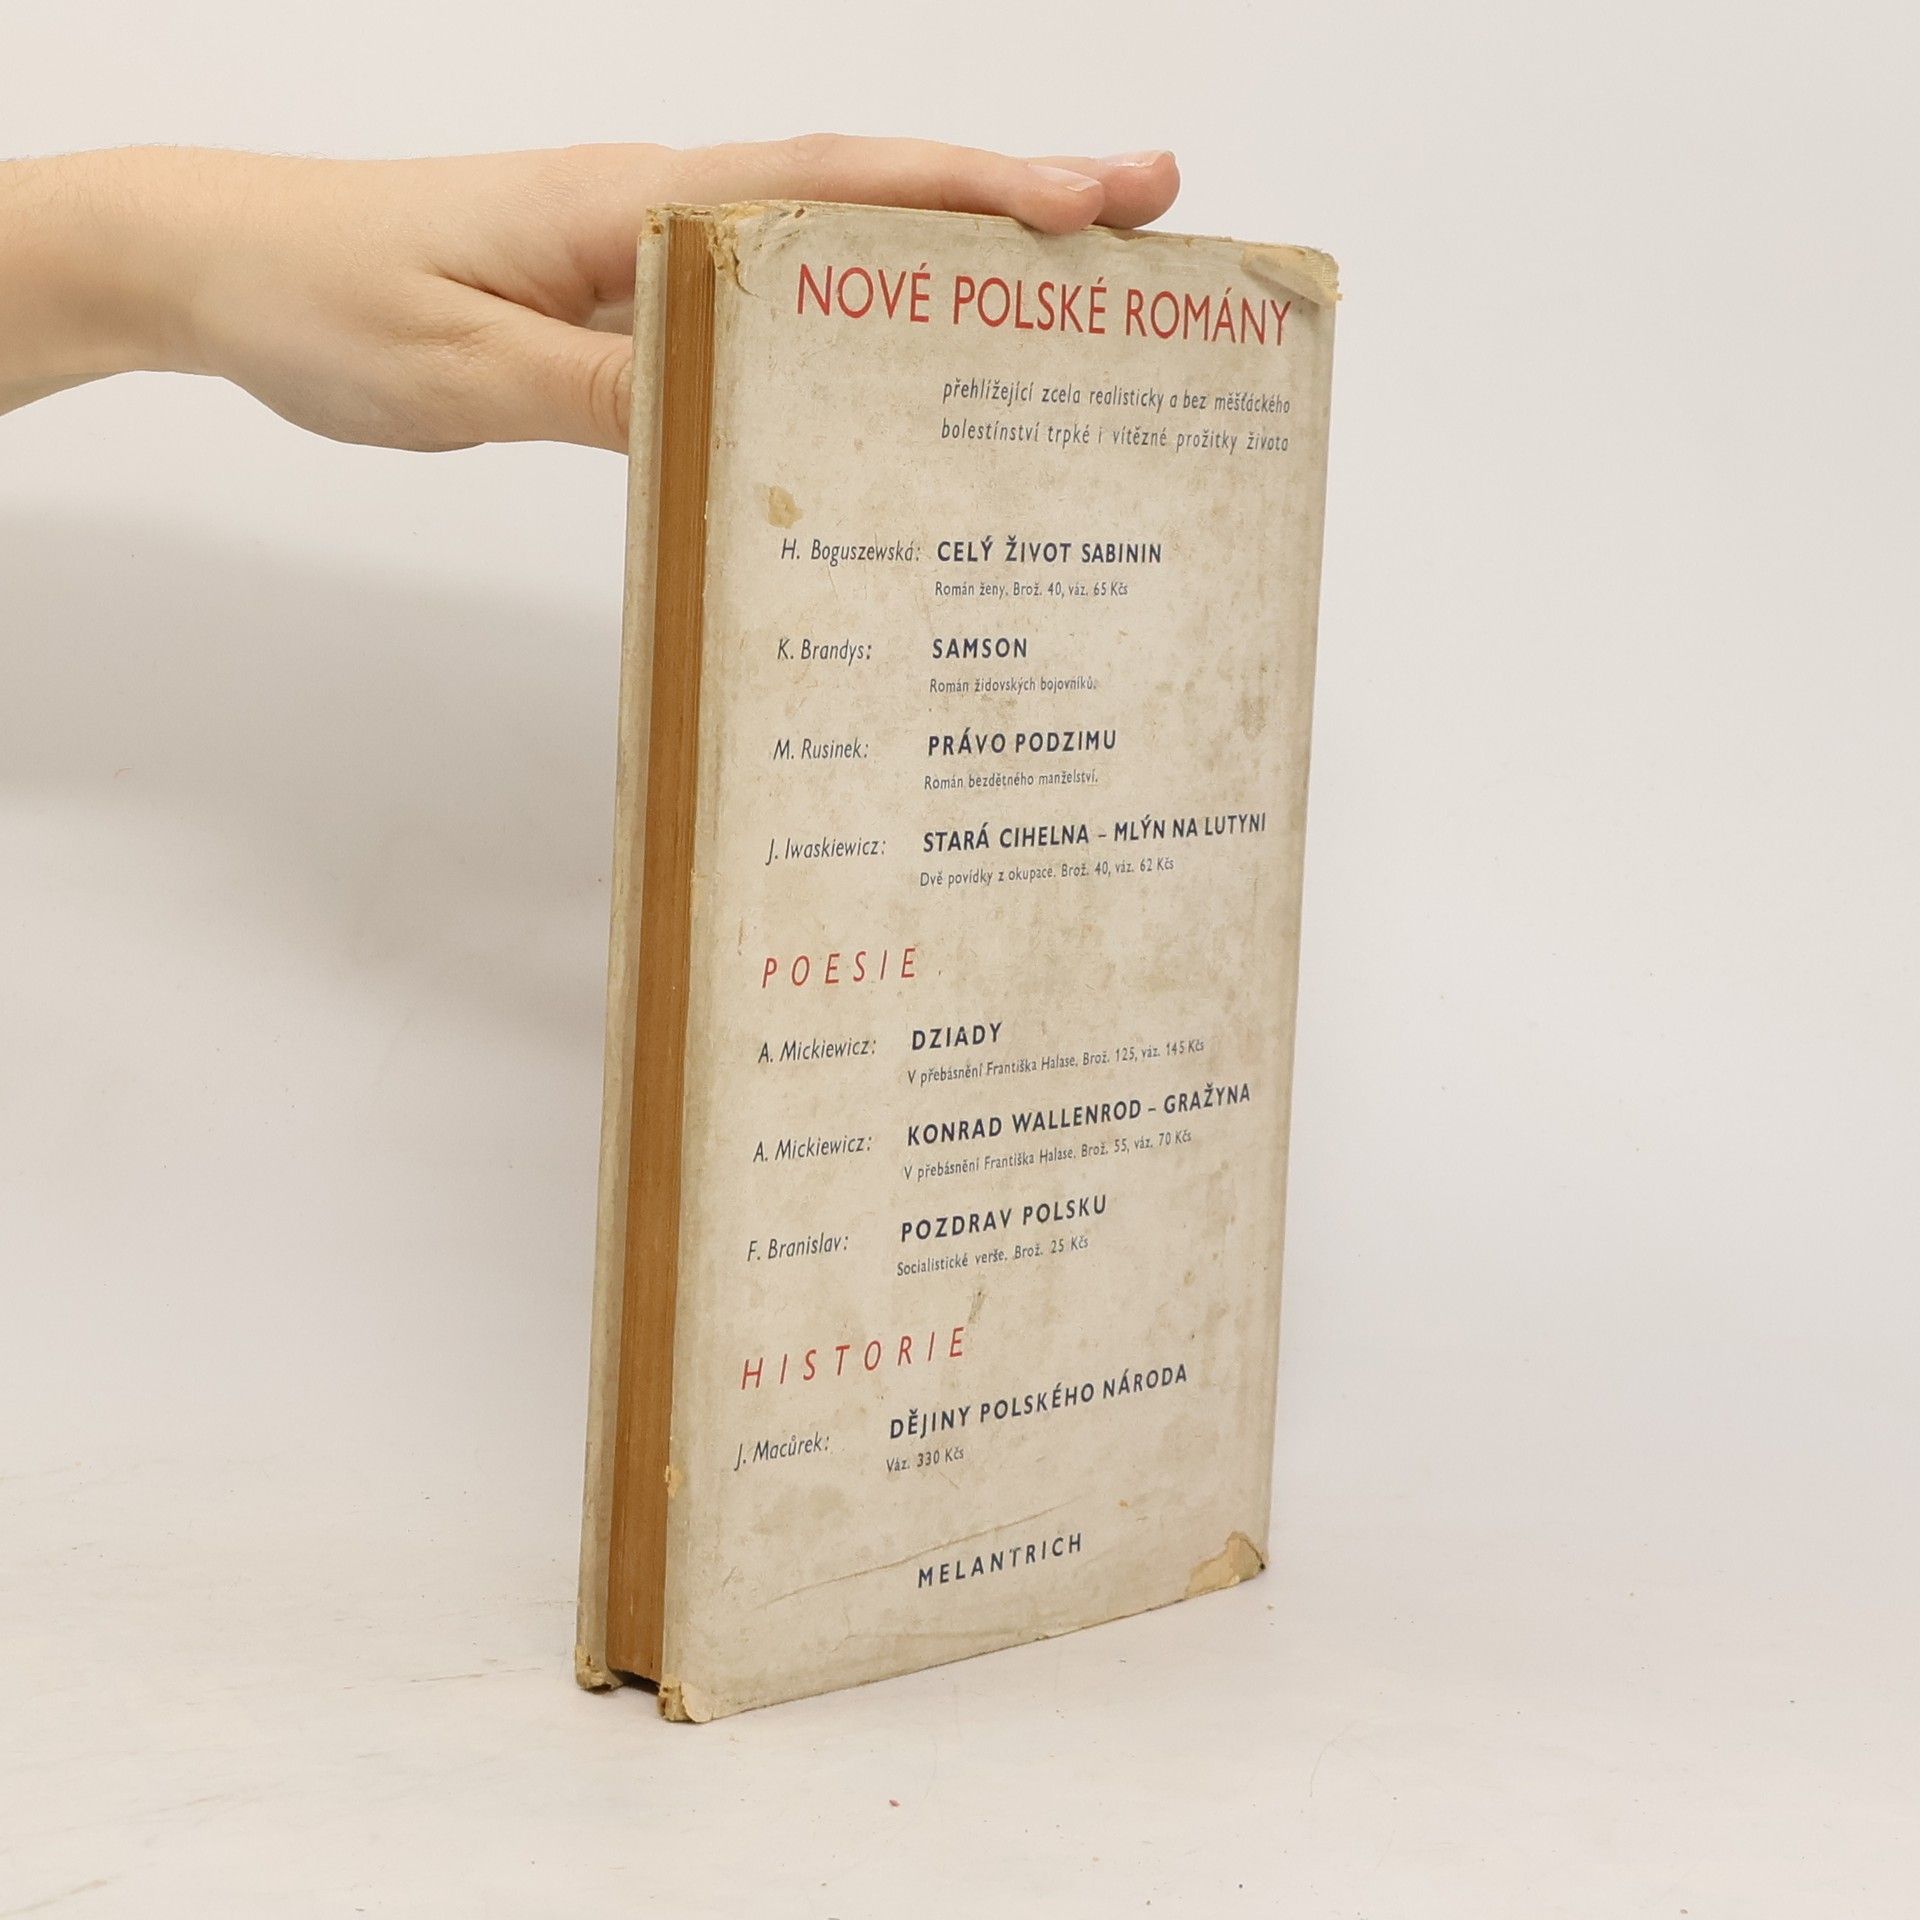 NOVÉ POLSKÉ ROMÁNY
přehlížející zcela realisticky a bez měšťáckého
bolestínství trpké i vítězné prožitky života
H. Boguszewská: CELÝ ŽIVOT SABININ
Román ženy. Brož. 40, váz. 65 Kčs
K. Brandys: SAMSON
Román židovských bojovníků.
M. Rusinek: PRÁVO PODZIMU
Román bezdětného manželství.
J. Iwaskiewicz: STARÁ CIHELNA – MLÝN NA LUTYNI
Dvě povídky z okupace. Brož. 40, váz. 62 Kčs
POESIE
A. Mickiewicz: DZIADY
V přebásnění Františka Halase. Brož. 125, váz. 145 Kčs
A. Mickiewicz: KONRAD WALLENROD – GRAŽYNA
V přebásnění Františka Halase. Brož. 55, váz. 70 Kčs
F. Branislav: POZDRAV POLSKU
Socialistické verše. Brož. 25 Kčs
HISTORIE
J. Macůrek: DĚJINY POLSKÉHO NÁRODA
Váz. 330 Kčs
MELANTRICH